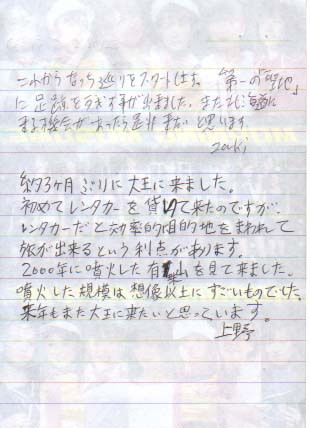 これからなっち巡りをスタートします。第一の「聖地」
に足跡を残す事が出来ました。またまた北海道に
来る機会があったら是非来たいと思います。
zouki
約3ヶ月ぶりに大王に来ました。
初めてレンタカーを貸りて来たのですが、
レンタカーだと効率的に目的地をまわれて
旅が出来るという利点があります。
2000年に噴火した有珠山を見て来ました。
噴火した規模は想像以上にすごいものでした。
来年もまた大王に来たいと思っています。
上野